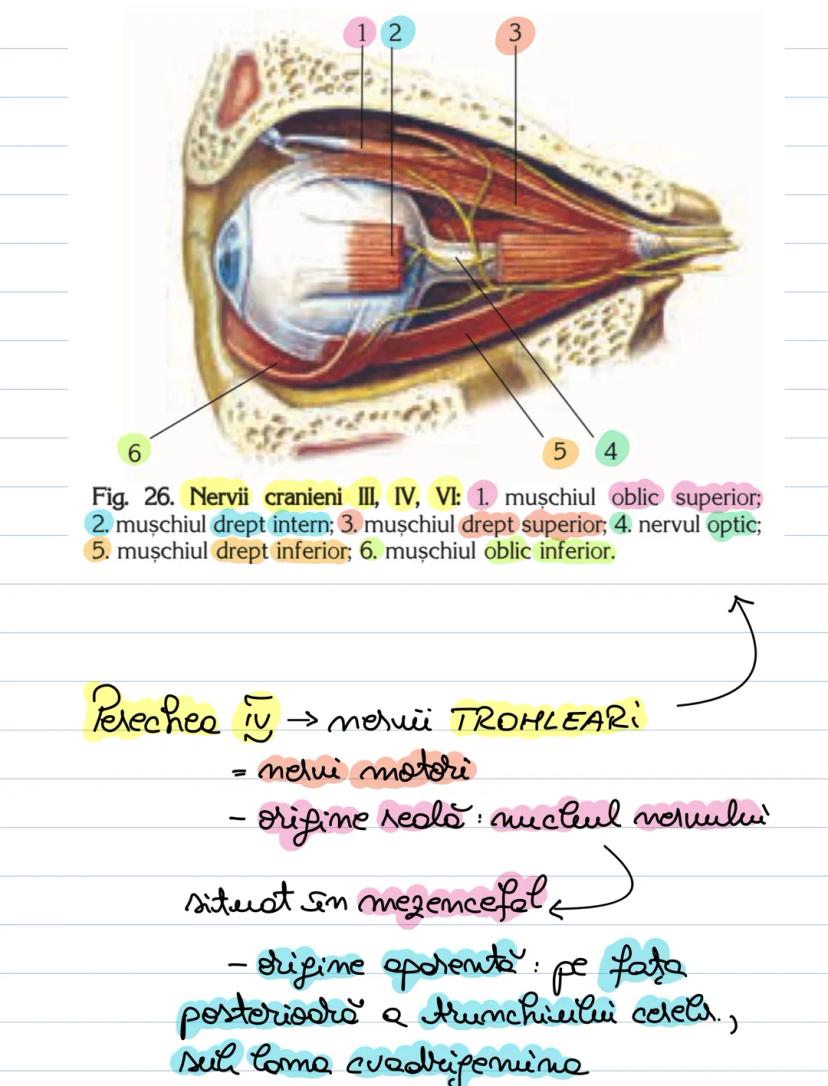 1 2 3
6 5 4
Fig. 26. Nervii cranieni III, IV, VI: 1. mușchiul oblic superior;
2. mușchiul drept intern; 3. mușchiul drept superior; 4. nervul optic;
5. mușchiul drept inferior; 6. mușchiul oblic inferior.
Perechea IV → nervii TROHLEARi
= nervi motori
- origine reală: nucleul nervului
situat în mezencefal
- origine aparentă: pe fața
posterioară a trunchiului cerebr.,
sub lama cvadrigemina